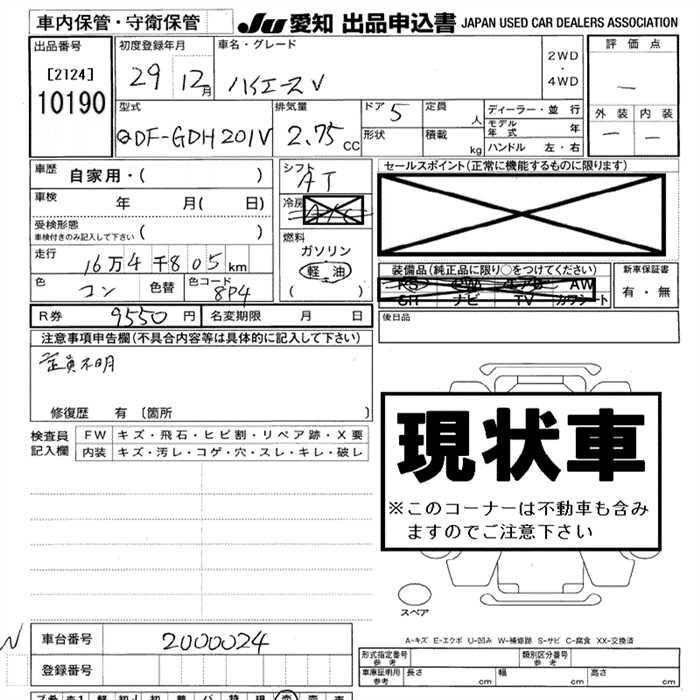 車内保管・守衛保管
JU 愛知 出品申込書 JAPAN USED CAR DEALERS ASSOCIATION
出品番号
[2124]
10190
初度登録年月
29 12月
車名・グレード
ハイエースV
2WD
・
4WD
評価点
—
外装 内装
— —
型式
QDF-GDH201V
排気量
2.75 CC
ドア 5
形状
定員 人
積載 kg
ディーラー・並行
モデル年式 年
ハンドル 左・右
車歴 自家用・( )
車検 年 月( 日)
受検形態
車検付きのみ記入して下さい ( )
走行 16万4千805km
色 コン 色替 色コード 8P4
シフト
AT
冷房
燃料
ガソリン
軽油
( )
セールスポイント(正常に機能するものに限ります)
装備品(純正品に限り○をつけてください)
PS PW エアB AW
SR ナビ TV カワシート
新車保証書
有・無
R券 9550円 名変期限 月 日
後日品
注意事項申告欄(不具合内容等は具体的に記入して下さい)
定員不明
修復歴 有 [箇所 ]
検査員記入欄
FW キズ・飛石・ヒビ割・リペア跡・X要
内装 キズ・汚レ・コゲ・穴・スレ・キレ・破レ
現状車
※このコーナーは不動車も含み
ますのでご注意下さい
スペア
A-キズ E-エクボ U-凹み W-補修跡 S-サビ C-腐食 XX-交換済
車台番号 2000024
登録番号
形式指定番号 参考
類別区分番号 参考
車庫証明用 参考 長さ cm 幅 cm 高さ cm